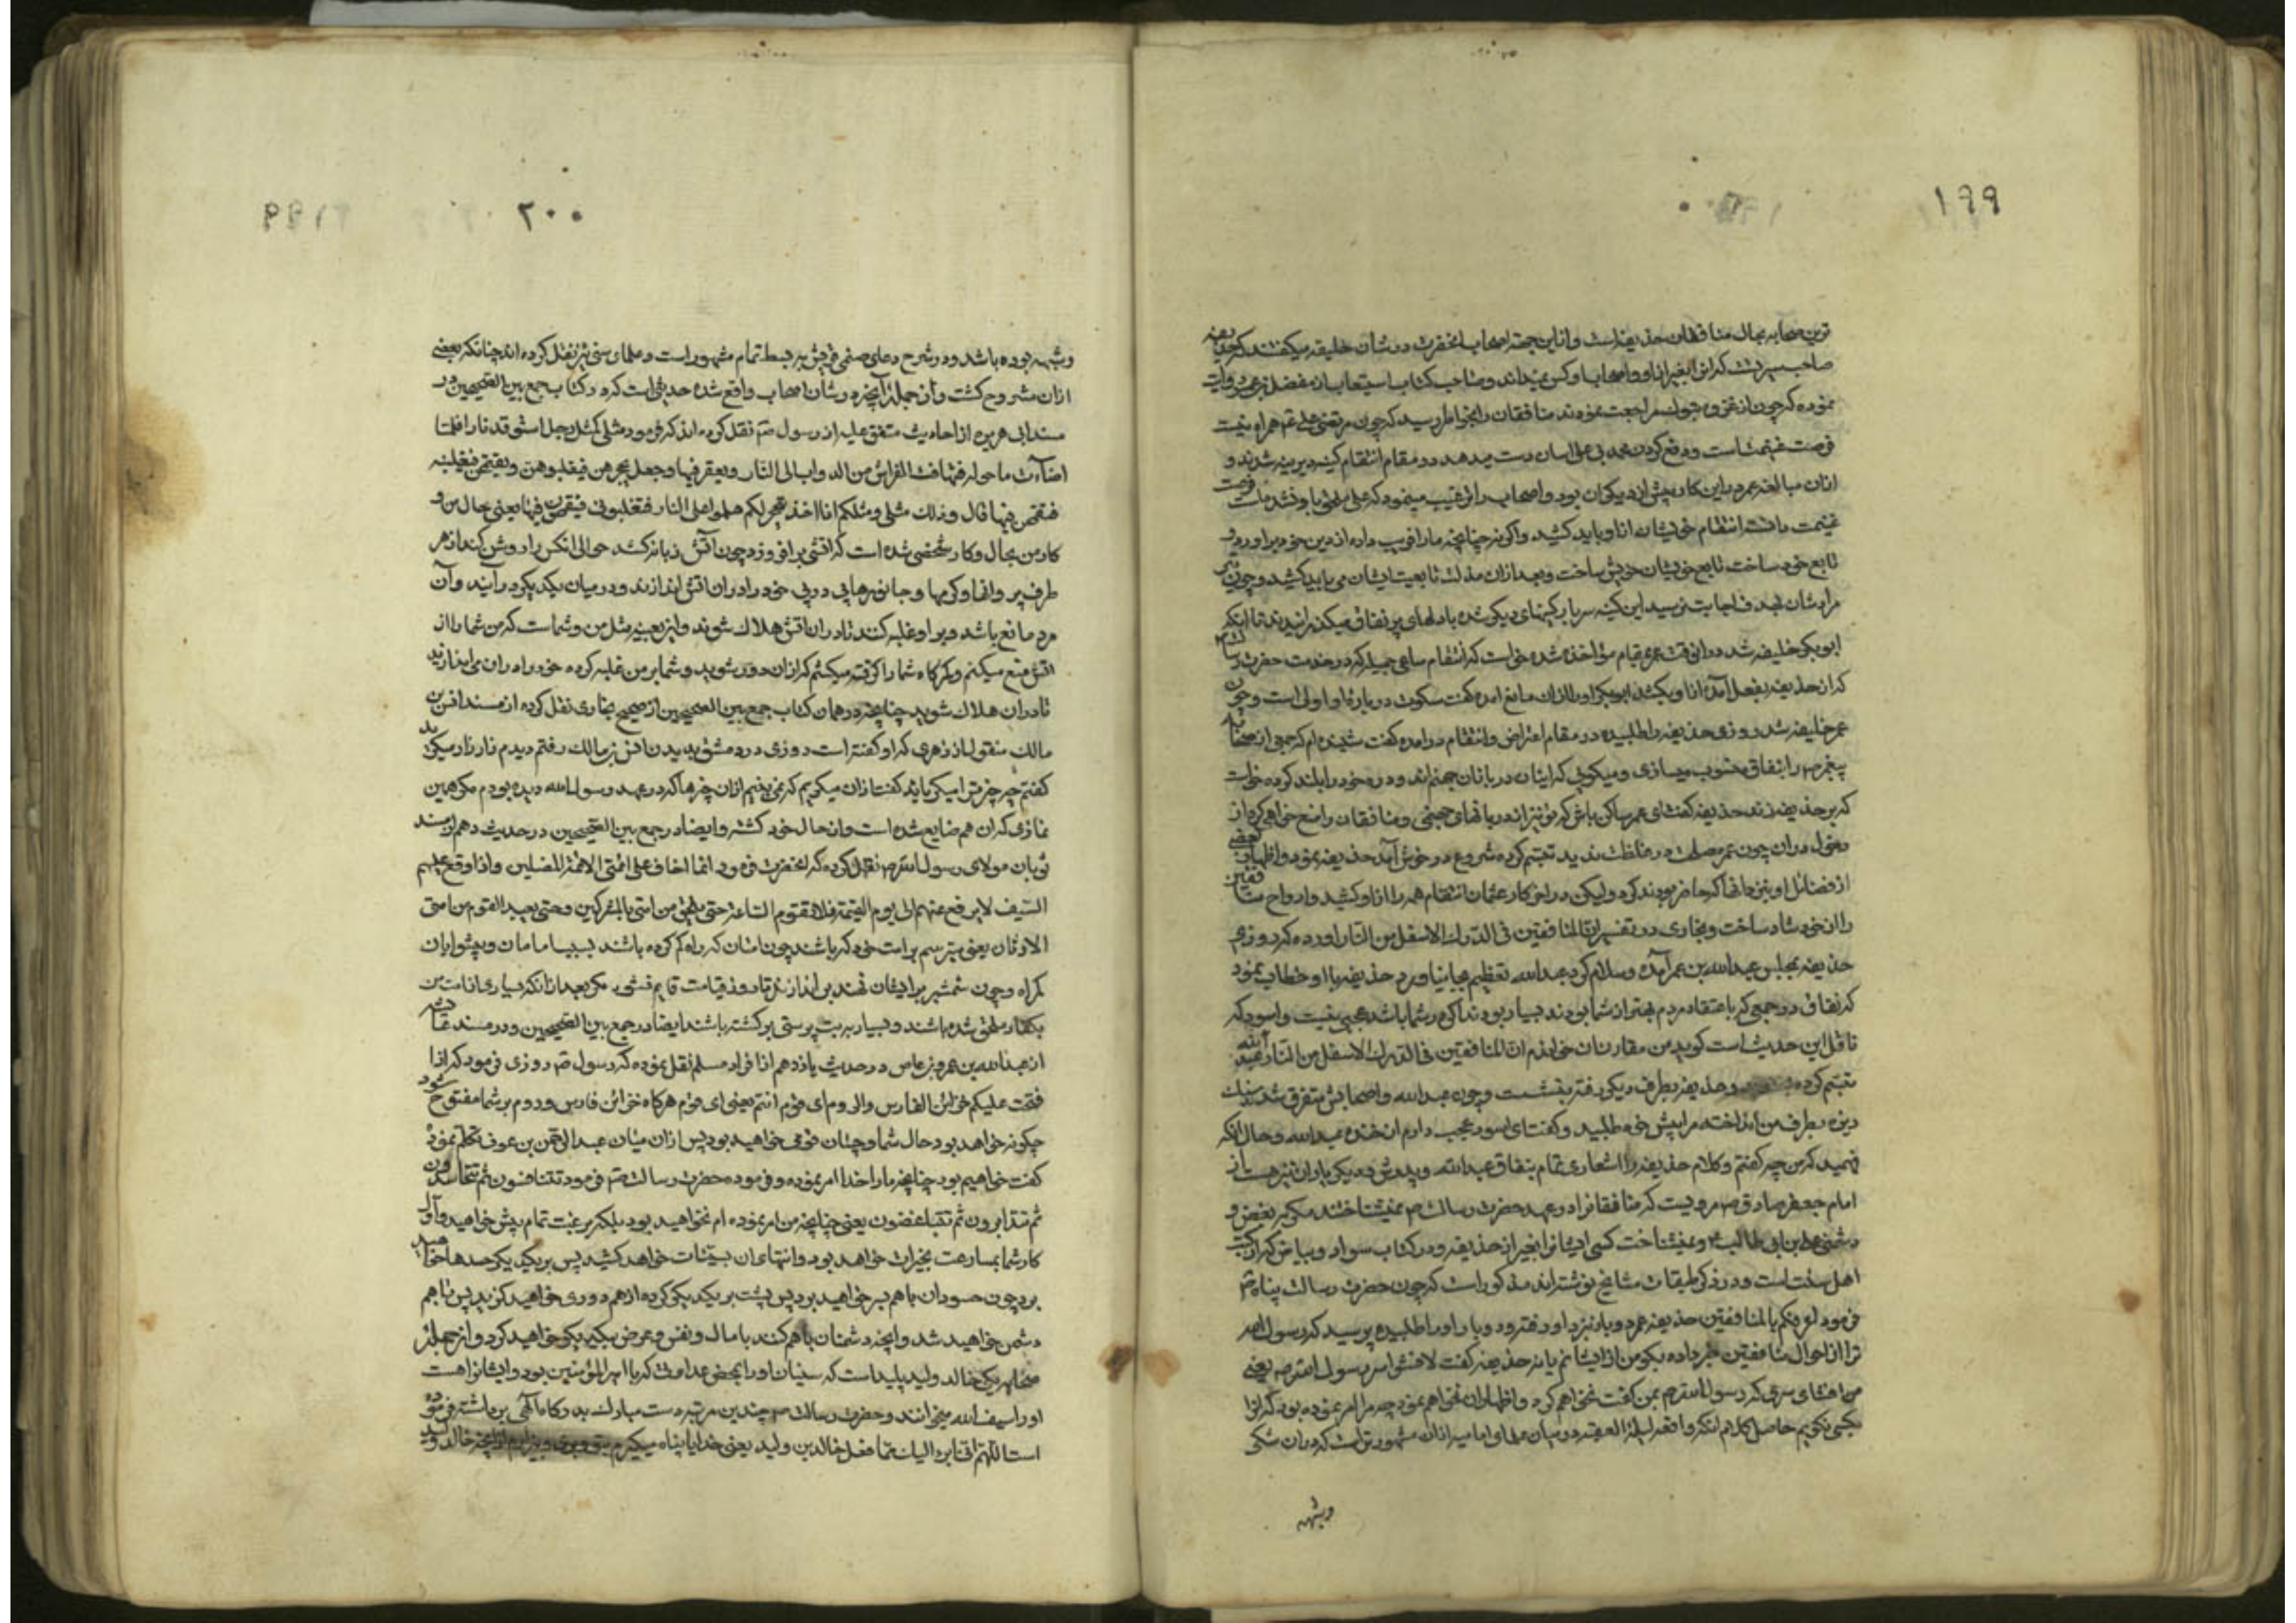 ۱۹۹
ترین صحابه بحال منافقان حذیفه است و ازین جهة اصحاب انحضرت در شان خلیفه میکفتند که
صاحب سریست که انرا بغیر از او و اصحاب او کس نمیداند و صاحب کتاب استیعاب از مفضل روایت
نموده که چون از غزوه تبوک مراجعت نمودند منافقان را بخواطر رسید که چون مرتضی علی ع همراه نیست
فرصت غنیمت است و دفع کردن محمد بی علی اسان دست میدهد در مقام انتقام کینه دیرینه شدند و
ازان مبالغه عمر در این کار پیش از دیکران بود و اصحاب را ترغیب مینمود که علی ملحق باو نشد فرصت
غنیمت دانسته انتقام خویشان از او باید کشید و اکونه چنانچه مارا فریب داده از دین خود براورد و
تابع خود ساخت تابع خویشان خویش ساخت و بعد ازان مذلت تابعیت ایشان می باید کشید و چون تیر
مرادشان بهدف اجابت نرسید این کینه سربار کینهای دیکر شده با دلهای پر نفاق میکذرانیدند تا انکه
ابوبکر خلیفه شد در انوقت عمر مقام مؤاخذه شده خواست که انتقام ساعی جمیله که در خدمت حضرت رسالت
که از حذیفه بفعل آمده از او بکشد ابوبکر او را ازان مانع امده کفت سکوت در باره او اولی است و چون
عمر خلیفه شد روزی حذیفه را طلبیده در مقام اعتراض و انتقام درامده کفت شنیده ام که جمعی از صحابه
پیغمبر ص را بنفاق منسوب میسازی و میکوئی که ایشان دربانان جهنم اند و دره خود را بلند کرده خواست
که بر حذیفه زند حذیفه کفت ای عمر ساکن باش که تو نیز از دربانهای جهنمی و منافقان را منع خواهی کرد از
دخول دران چون عمر مصلحت در غلظت ندید تبسم کرده شروع در خوش آمد حذیفه نمود و اظهار بعضی
از فضائل او نیز جماعتی که حاضر بودند کرد ولیکن در اخر کار عثمان انتقام همه را از او کشید و ارواح منافقین
را از خود شاد ساخت و بخاری در تفسیر ان المنافقین فی الدرک الاسفل من النار اورده که روزی
حذیفه بمجلس عبدالله بن عمر آمده و سلام کرد عبدالله تعظیم بجا نیاورد حذیفه با او خطاب نمود
که نفاق در جمعی که باعتقاد مردم بهتر از شما بودند بسیار بود اکر در شما باشد عجبی نیست و اسود که
ناقل این حدیث است کوید من مقارن ان خواندم ان المنافقین فی الدرک الاسفل من النار عبدالله
تبسم کرده و حذیفه بطرف دیکر رفته بنشست و چون عبدالله و اصحابش متفرق شدند سنک
ریزه بطرف من انداخته مرا پیش خود طلبید و کفت ای اسود عجب دارم از خنده عبدالله و حال انکه
فهمید که من چه کفتم و کلام حذیفه را اشعاری تمام بنفاق عبدالله و پدرش و دیکر یاران نیز هست باز
امام جعفر صادق ع مرویست که منافقانرا در عهد حضرت رسالت ص نمیشناختند مکر به بغض و
دشمنی علی بن ابی طالب ع و نمیشناخت کسی ایشانرا بغیر از حذیفه و در کتاب سواد و بیاض که از کتب
اهل سنت است و در ذکر طبقات مشایخ نوشته اند مذکور است که چون حضرت رسالت پناه ص
فرمود اعرفکم بالمنافقین حذیفه عمر دو بار نزد او رفته و دو بار او را طلبیده پرسید که رسول الله
ترا از احوال منافقین خبر داده بکو من از ایشانم یا نه حذیفه کفت لا افشو اسر رسول الله ص یعنی
من افشای سری که رسول الله ص بمن کفت نخواهم کرد و اظهار ان نخواهم نمود چه مرا امر نموده بود که انرا
بکسی نکویم حاصل کلام انکه واقعه لیلة العقبه در میان علمای امامیه ازان مشهورتر است که دران شکی
وشبهه
۲۰۰
وشبهه بوده باشد و در شرح دعای صنمی قریش به بسط تمام مشهور است و علمای سنی نیز نقل کرده اند چنانکه بعضی
ازان مشروح کشت و از جمله آنچه در شان اصحاب واقع شده حدیثی است که در کتاب جمع بین الصحیحین در
مسند ابی هریره از احادیث متفق علیه از رسول ص نقل کرده اند که فرمود مثلی کمثل رجل استوقد نارا فلما
اضآءت ما حوله فتهافت الفراش من الدواب الی النار و یعقر فیها و جعل یحجرهن فیغلبوهن و یقتحمن فیغلبنه
فیقتحمن فیها قال و ذلک مثلی و مثلکم انا اخذ بحجزکم هلموا عن النار فتغلبونی فیقتحمون فیها یعنی حال من و
کار من بحال و کار شخصی شده است که اتشی برافروزد چون آتش زبانه کشد حوالی انکس را روشن کند از هر
طرف پروانها و کرمها و جانورهایی در پی خود را دران اتش اندازند و در میان یکدیکر در آیند و آن
مرد مانع باشد و بر او غلبه کنند تا دران اتش هلاک شوند و این بعینه مثل من و شماست که من شما را از
اتش منع میکنم و کمرکاه شما را کرفته میکشم که ازان دور شوید و شما بر من غلبه کرده خود را دران می اندازید
تا دران هلاک شوید چنانچه در همان کتاب جمع بین الصحیحین از صحیح بخاری نقل کرده از مسند انس بن
مالک منقول از زهری که او کفته است روزی در دمشق بدیدن انس بن مالک رفتم دیدم زار زار میکرید
کفتم چه چیز ترا میکریاند کفت ازان میکریم که نمی بینم ازان چیزها که در عهد رسول الله دیده بودم مکر همین
نمازی که ان هم ضایع شده است و از حال خود کشته و ایضا در جمع بین الصحیحین در حدیث دهم از مسند
ثوبان مولای رسول الله ص نقل کرده که انحضرت فرمود انما اخاف علی امتی الائمة المضلین و اذا وقع علیهم
السیف لا یرفع عنهم الی یوم القیمة فلا تقوم الساعة حتی یلحق من امتی بالمشرکین و حتی یعبد القوم من امتی
الاوثان یعنی میترسم بر امت خود که باشند چون امتان که راه کم کرده باشند بسبب امامان و پیشوایان
کمراه و چون شمشیر بر ایشان نهند بر ندارند تا روز قیامت قایم نشود مکر بعد ازانکه بسیاری از امت من
بکفار ملحق شده باشند و بسیار به بت پرستی برکشته باشند ایضا در جمع بین الصحیحین و در مسند
از عبدالله بن عمرو بن عاص در حدیث یازدهم از افراد مسلم نقل نموده که رسول ص روزی فرمود که اذا
فتحت علیکم خزائن الفارس والروم ای قوم انتم یعنی ای قوم هرکاه خزائن فارس و روم بر شما مفتوح شود
چکونه خواهد بود حال شما و چسان قومی خواهید بود پس ازان میان عبدالرحمن بن عوف تکلم نموده
کفت خواهیم بود چنانچه مارا خدا امر نموده و فرموده حضرت رسالت ص فرمود تتنافسون ثم تتحاسدون
ثم تتدابرون ثم تتباغضون یعنی چنانچه من امر نموده ام نخواهید بود بلکه برغبت تمام پیش خواهید و اول
کار شما بمسارعت بخیرات خواهد بود و انتهای ان بسیئات خواهد کشید پس بر یکدیکر حسدها خواهید
برد چون حسودان باهم بسر خواهید برد پس پشت بر یکدیکر کرده از هم دوری خواهید کزید پس باهم
دشمن خواهید شد و انچه دشمنان باهم کنند با مال و نفس و عرض یکدیکر خواهید کرد و از جمله
صحابه یکی خالد ولید پلید است که سنیان او را بمحض عداوتی که با امیرالمؤمنین بود و ایشانرا هست
او را سیف الله میخوانند و حضرت رسالت ص چندین مرتبه دست مبارک بدرکاه الهی برداشته فرموده
است اللهم انی ابرء الیک مما فعل خالد بن ولید یعنی خدایا پناه میکیرم بتو و بری و بیزارم از انچه خالد ولید